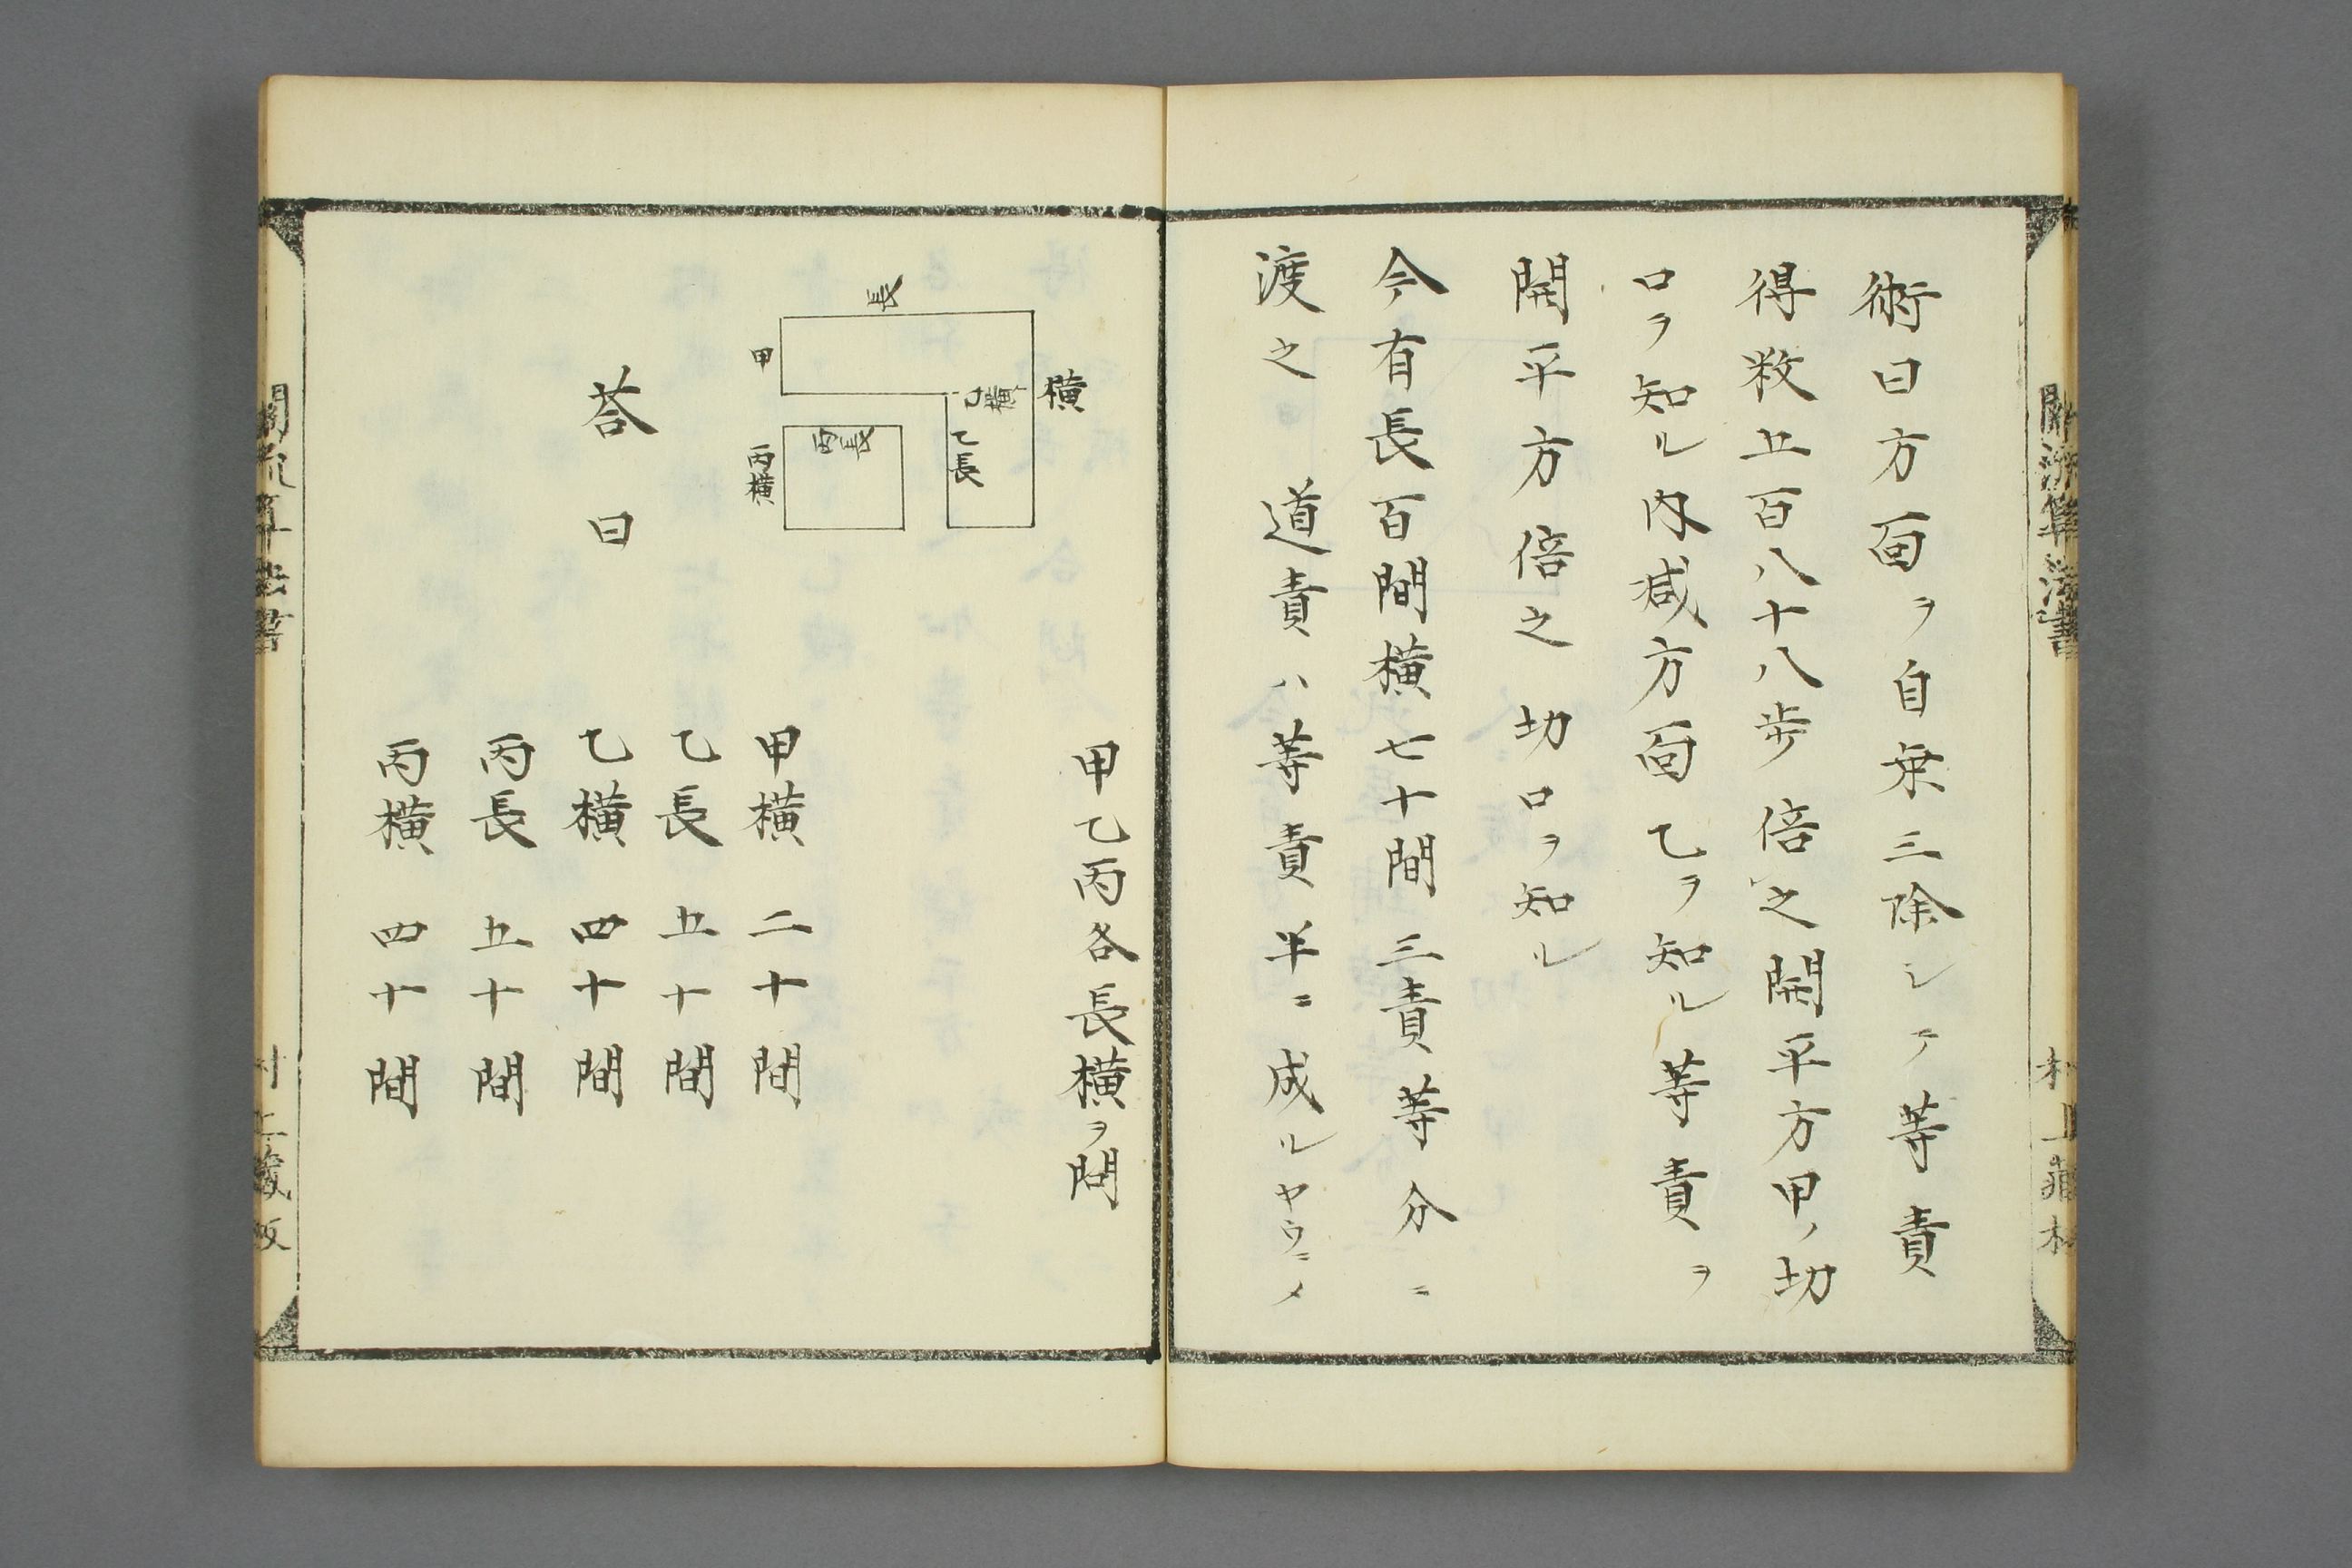 術曰方面ヲ自乗三除シテ等責
得数五百八十八歩倍之開平方甲ノ切
口ヲ知ル内减方面乙ヲ知ル等責ヲ
開平方倍之切口ヲ知ル
今有長百間横七十間三責等分ニ
渡之 道責ハ等責半ニ成ルヤウニメ
甲乙丙各長横ヲ問
長
甲
横
乙横
乙長
丙長
丙横
荅曰
甲横 二十間
乙長 五十間
乙横 四十間
丙長 五十間
丙横 四十間
関流算法書